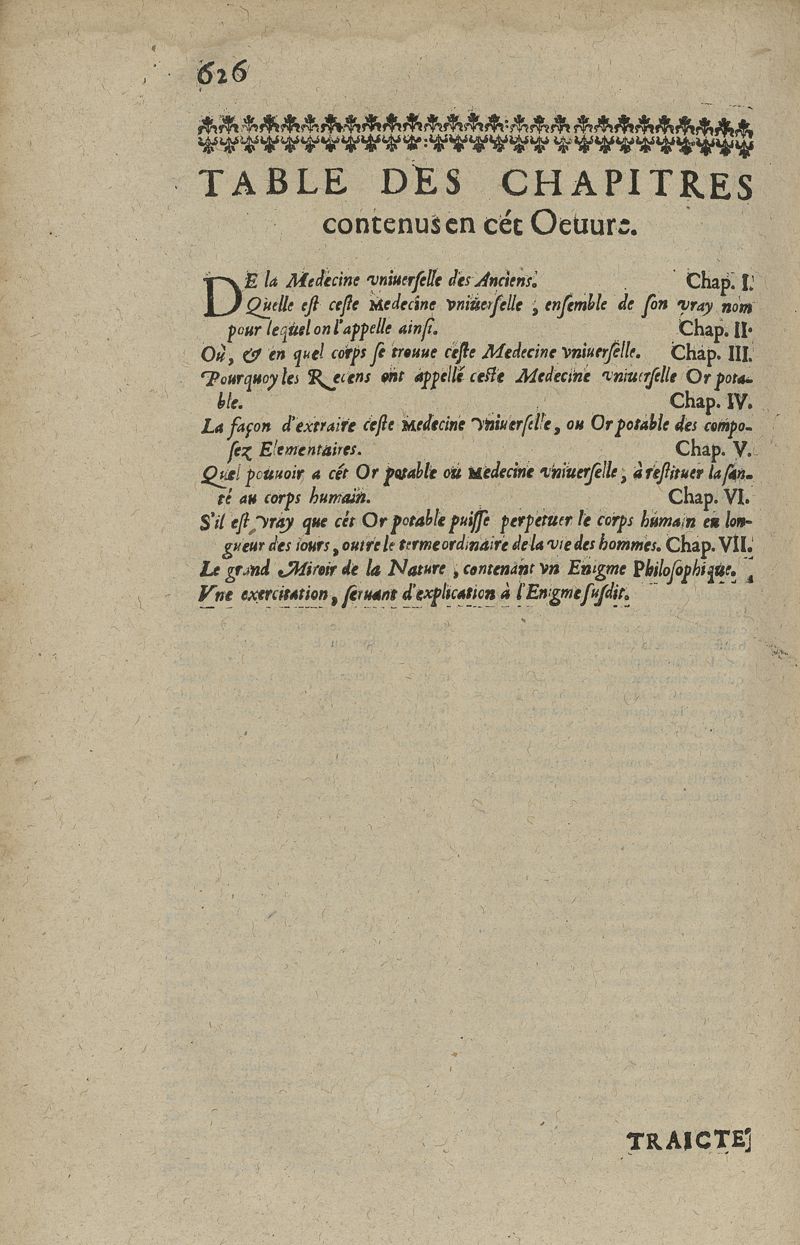 626
TABLE DES CHAPITRES
contenus en cét Oeuure.
DE la Medecine vniuerſelle des Anciens. Chap. I.
Quelle eſt ceſte Medecine vniuerſelle, enſemble de ſon vray nom
pour lequel on l'appelle ainſi. Chap. II.
Où, & en quel corps ſe treuue ceſte Medecine vniuerſelle. Chap. III.
Pourquoy les Recens ont appellé ceſte Medecine vniuerſelle Or pota-
ble. Chap. IV.
La façon d'extraire ceſte Medecine vniuerſelle, ou Or potable des compo-
ſez Elementaires. Chap. V.
Quel pouuoir a cét Or potable ou Medecine vniuerſelle, à reſtituer la ſan-
té au corps humain. Chap. VI.
S'il eſt vray que cét Or potable puiſſe perpetuer le corps humain en lon-
gueur des iours, outre le terme ordinaire de la vie des hommes. Chap. VII.
Le grand Miroir de la Nature, contenant vn Enigme Philoſophique.
Vne exercitation, ſeruant d'explication à l'Enigme ſuſdit.
TRAICTE'